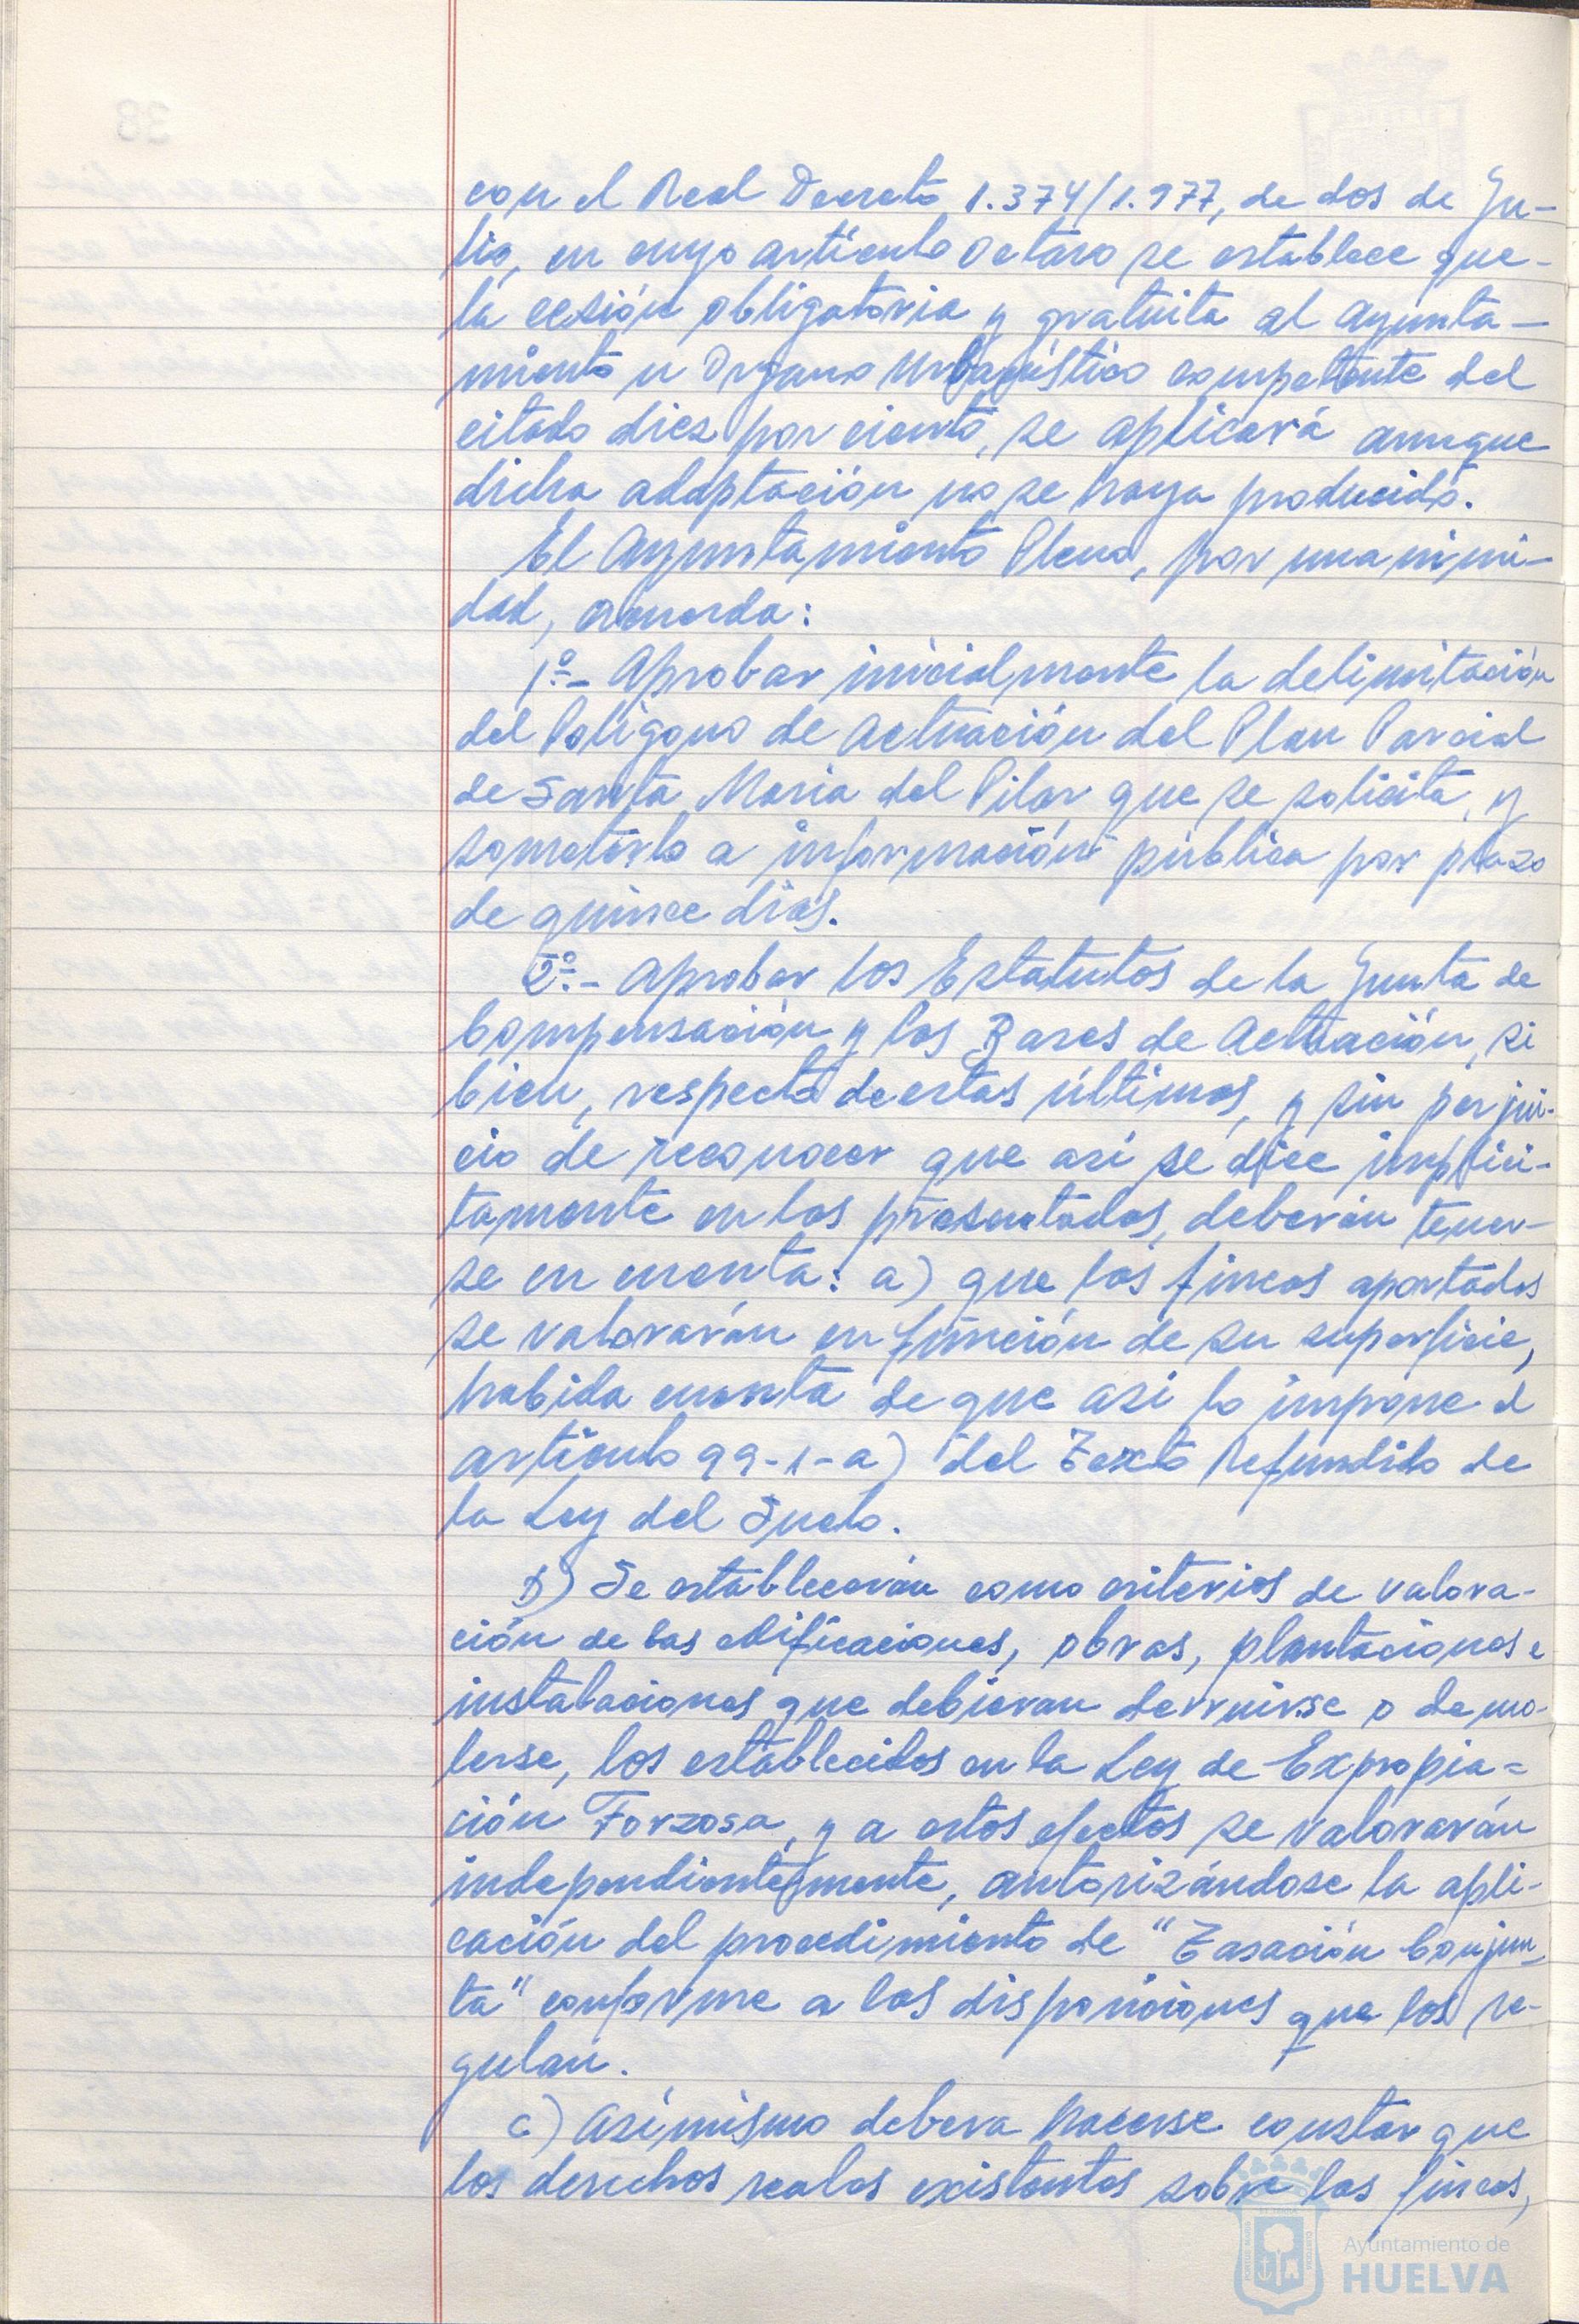 con el Real Decreto 1.374/1.977, de dos de Ju-
lio, en cuyo artículo Octavo se establece que-
la cesión obligatoria y gratuita al Ayunta-
miento u Organo Urbanístico competente del
citado diez por ciento, se aplicará aunque
dicha adaptación no se haya producido.
El Ayuntamiento Pleno, por unanimi-
dad, acuerda:
1º.- Aprobar inicialmente la delimitación
del Poligono de Actuación del Plan Parcial
de Santa Maria del Pilar que se solicita, y
someterlo a información pública por plazo
de quince dias.
2º.- Aprobar los Estatutos de la Junta de
Compensación y las Bases de Actuación, si
bien, respecto de estas últimas, y sin perjui-
cio de reconocer que así se dice implici-
tamente en las presentadas, deberán tener-
se en cuenta: a) que las fincas aportadas
se valorarán en función de su superficie,
habida cuenta de que asi lo impone el
artículo 99-1-a) del Texto Refundido de
la Ley del Suelo.
b) Se establecerán como criterios de valora-
ción de las edificaciones, obras, plantaciones e
instalaciones que debieran derruirse o demo-
lerse, los establecidos en la Ley de Expropia-
ción Forzosa, y a estos efectos se valorarán
independientemente, autorizándose la apli-
cación del procedimiento de "Tasación Conjun-
ta" conforme a las disposiciones que los re-
gulan.
c) Asímismo debera hacerse constar que
los derechos reales existentes sobre las fincas,
Ayuntamiento de
HUELVA